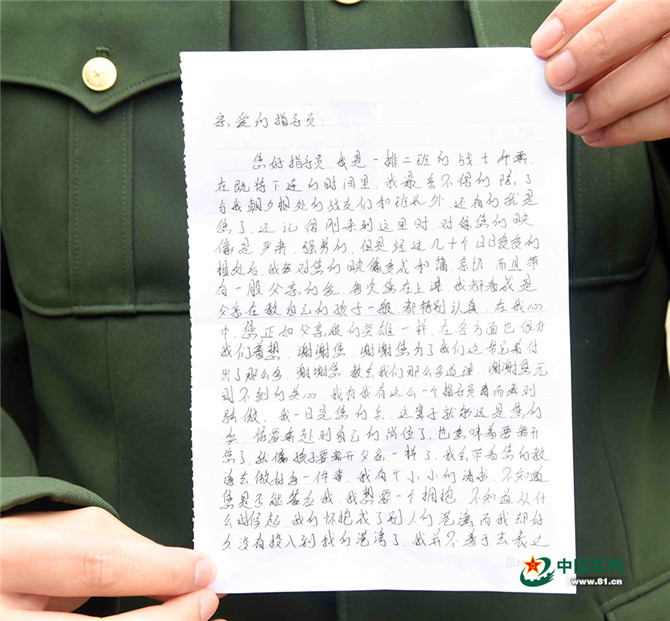 亲爱的指导员:
您好指导员,我是一排二班的战士
在既将下连的时间里,我最舍不得的除了
与我朝夕相处的战友们和班长外,还有的就是
您了,还记得刚来到这里时,对您的映
像是严肃、强势的,但是经过几十个日日夜夜的
相处后,我对您的映像变成和蔼亲切而且带
有一股父亲的爱,每次您在上课我都看成是
父亲在教自己的孩子一般都特别认真,在我心
中,您正如父亲般的英雄一样,在各方面也
我们着想,谢谢您,谢谢您为了我们这书呆着付
出了那么多,谢谢您教会我们那么多道理,谢谢您无
则不到的关心,我为我有这么一个指导员而感到
骄傲,我一日是您的兵,这辈子就永远是您的
兵,将要奔赴到自己的岗位了,也意味着要离开
您了,就像孩子要离开父亲一样了,我会带着您的教
诲去做好每一件事,我有个小小的请求,不知道
您是否能答应我,我想要一个拥抱,不知道从什
么时候起,我的怀抱成了别人的港湾而我却好
久没有投入到我的港湾了,我并不善于去表达
中国军网
www.81.cn